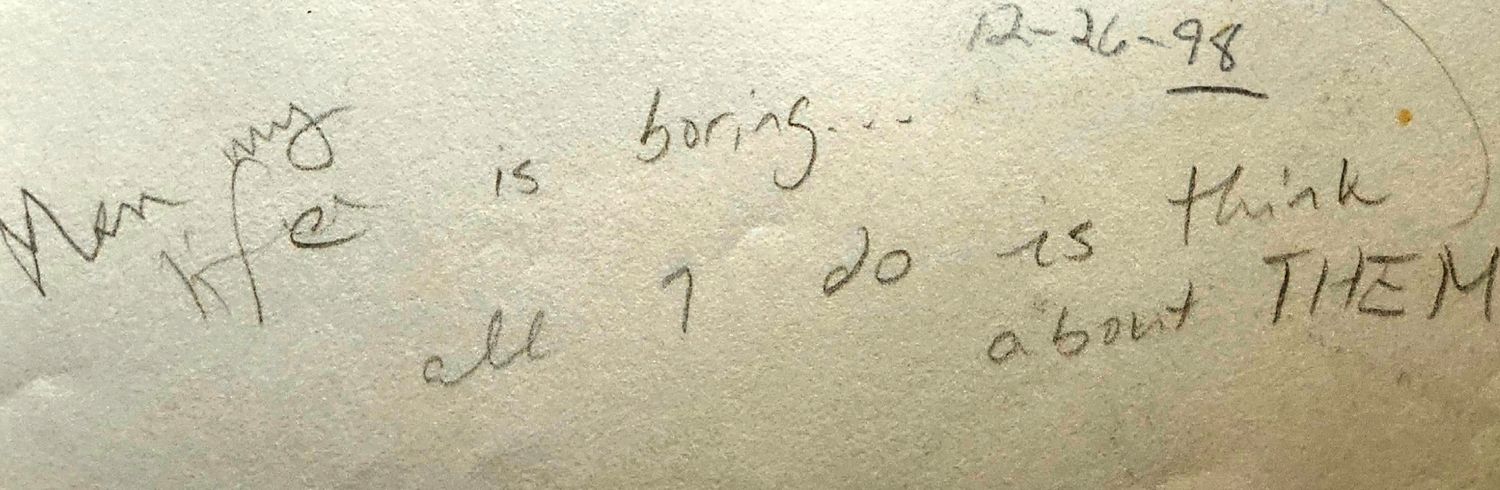 12-26-98
Man my life is boring...
all I do is think
about THEM